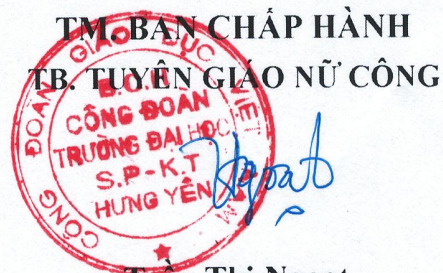 TM. BAN CHẤP HÀNH
TB. TUYÊN GIÁO NỮ CÔNG
CÔNG ĐOÀN GIÁO DỤC VIỆT
CÔNG ĐOÀN
TRƯỜNG ĐẠI HỌC
S.P - K.T
HƯNG YÊN
Ngoạt